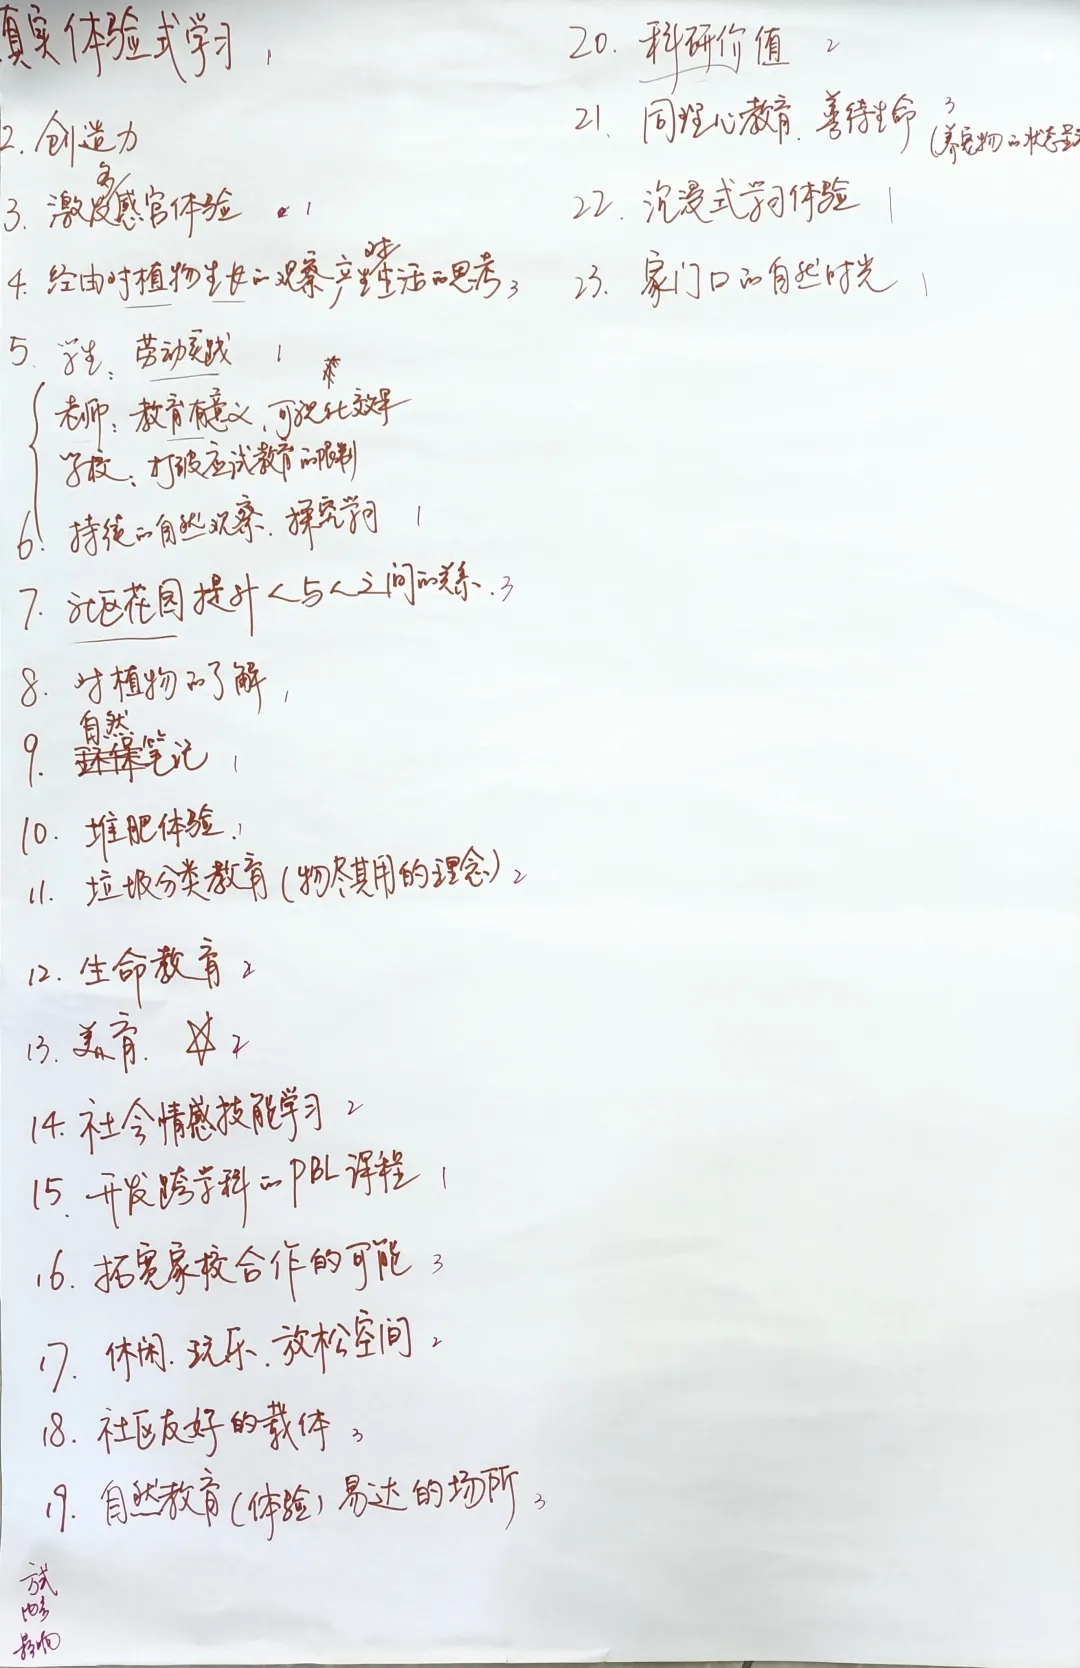 真实体验式学习 1
2. 创造力
3. 激发多感官体验 1
4. 经由对植物生长的观察产生对生活的思考 3
5. 学生：劳动实践 1
老师：教育有意义，可视化效果
学校：打破应试教育的限制
6. 持续的自然观察、探究学习 1
7. 社区花园提升人与人之间的关系 . 3
8. 对植物的了解 1
9. 自然笔记 1
10. 堆肥体验 1
11. 垃圾分类教育（物尽其用的理念） 2
12. 生命教育 2
13. 美育. ☆ 2
14. 社会情感技能学习 2
15. 开发跨学科的PBL课程 1
16. 拓宽家校合作的可能 3
17. 休闲、玩乐、放松空间 2
18. 社区友好的载体 3
19. 自然教育（体验）易达的场所 3
方式
内容
影响
20. 科研价值 2
21. 同理心教育、善待生命 3
（养宠物的状态
22. 沉浸式学习体验 1
23. 家门口的自然时光 1